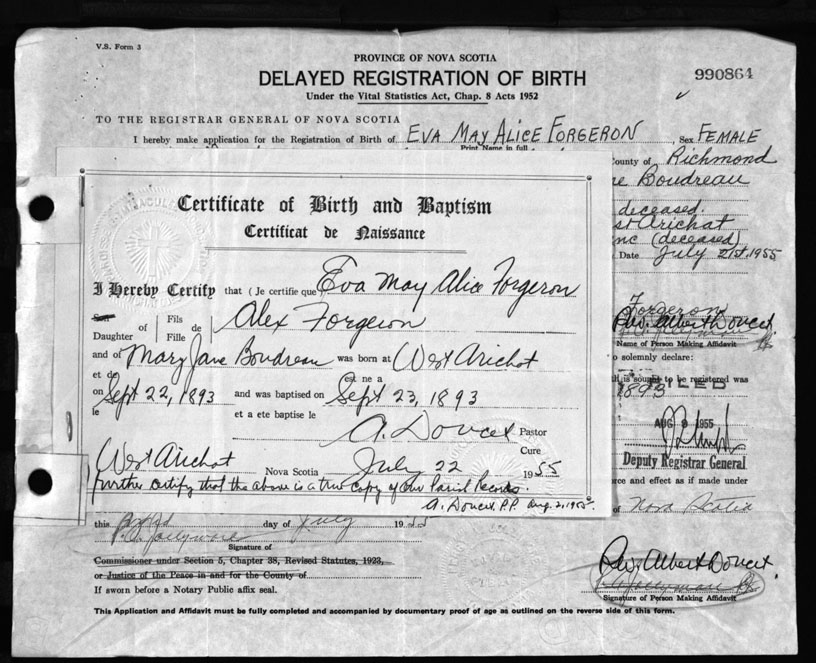 V.S. Form 3
PROVINCE OF NOVA SCOTIA
DELAYED REGISTRATION OF BIRTH
990864
Under the Vital Statistics Act, Chap. 8 Acts 1952
TO THE REGISTRAR GENERAL OF NOVA SCOTIA
I hereby make application for the Registration of Birth of EVA MAY ALICE FORGERON, Sex FEMALE
Print Name in full
County of Richmond
ne Boudreau
deceased.
st Arichat
nc (deceased)
Date July 21st, 1955
Certificate of Birth and Baptism
Certificat de Naissance
I Hereby Certify that (Je certifie que) Eva May Alice Forgeron
Son
Daughter of
Fils
Fille de
Alex Forgeron
and of Mary Jane Boudreau was born at West Arichat
et de
est ne a
on Sept 22, 1893 and was baptised on Sept 23, 1893
le
et a ete baptise le
A. Doucet Pastor
Cure
West Arichat Nova Scotia July 22 1955
further certify that the above is a true copy of our Parish Records.
A. Doucet P.P. Aug. 2, 1955.
Forgeron
Rev. Albert Doucet
Name of Person Making Affidavit
o solemnly declare:
th is sought to be registered was
1893
FILED
AUG 9 1955
Deputy Registrar General
rce and effect as if made under
of Nova Scotia
this day of July 1955
Signature of
Commissioner under Section 5, Chapter 38, Revised Statutes, 1923,
or Justice of the Peace in and for the County of
If sworn before a Notary Public affix seal.
Rev. Albert Doucet
Signature of Person Making Affidavit
This Application and Affidavit must be fully completed and accompanied by documentary proof of age as outlined on the reverse side of this form.